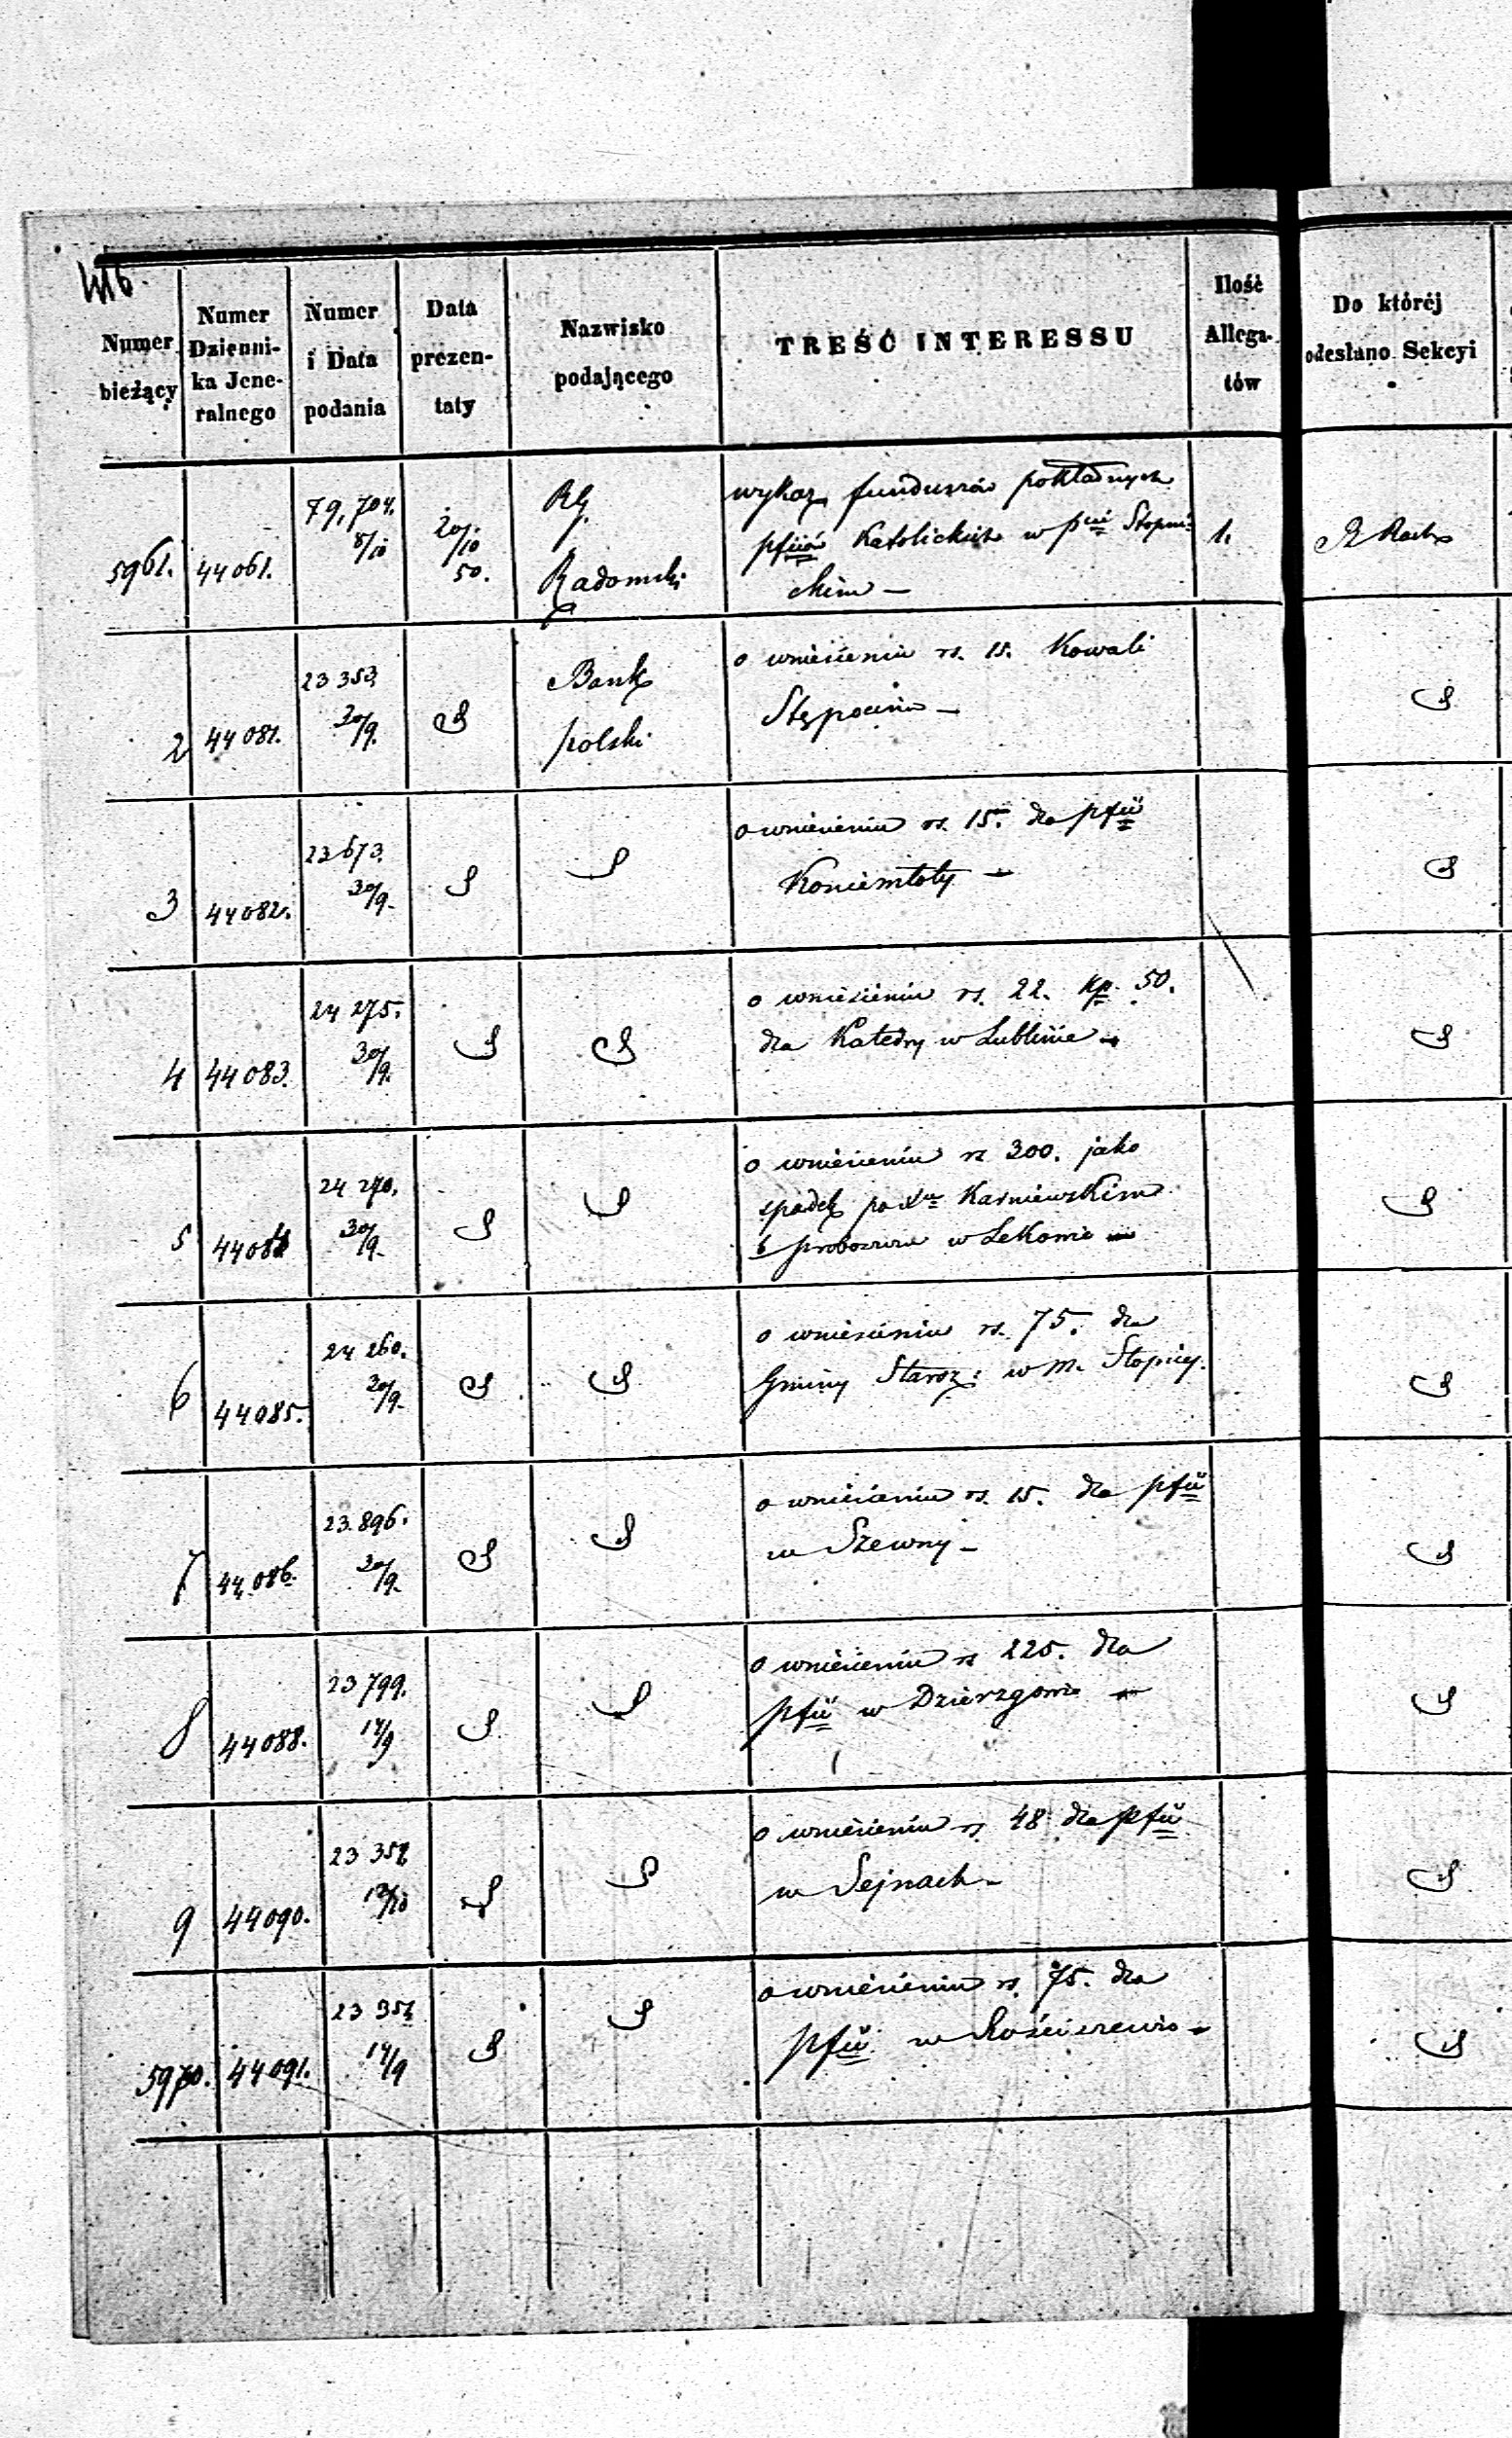 Numer bieżący
Numer Dzienni-ka Jene-ralnego
Numer i Data podania
Data prezen-taty
Nazwisko podającego
TREŚĆ INTERESSU
Ilość Allega-tów
Do któréj odesłano Sekcyi
5961. 44061. 79,704. 8/10 20/10 50. RG. Radomski
wykaz funduszów pokładnych
pfiiów Katolickich w pcie Stopni-
ckim —
1.
2 44081. 23 353. 30/9. Bank polski
o wniesieniu rs. 15. Kowali
Stępocina —
3 44082. 23673. 30/9.
o wniesieniu rs. 15. dla pfii
Koniemłoty —
4 44083. 24 275. 30/9.
o wniesieniu rs. 22. kp. 50.
dla Katedry w Lublinie —
5 44084 24 270. 30/9.
o wniesieniu rs 300. jako
spadek po Xu Kaśniewskim
b proboszczu w Lekowie —
6 44085. 24 260. 30/9.
o wniesieniu rs. 75. dla
Gminy Staroz: w m. Stopnicy.
7 44086. 23.896. 30/9.
o wniesieniu rs. 15. dla pfii
w Szewny —
8 44088. 23 799. 14/9
o wniesieniu rs 225. dla
pfii w Dzierzgowie —
9 44090. 23 358
o wniesieniu rs 48 dla pfii
w Sejnach —
5970. 44091. 14/9
o wniesieniu rs. 75. dla
pfii w Rościszewie —